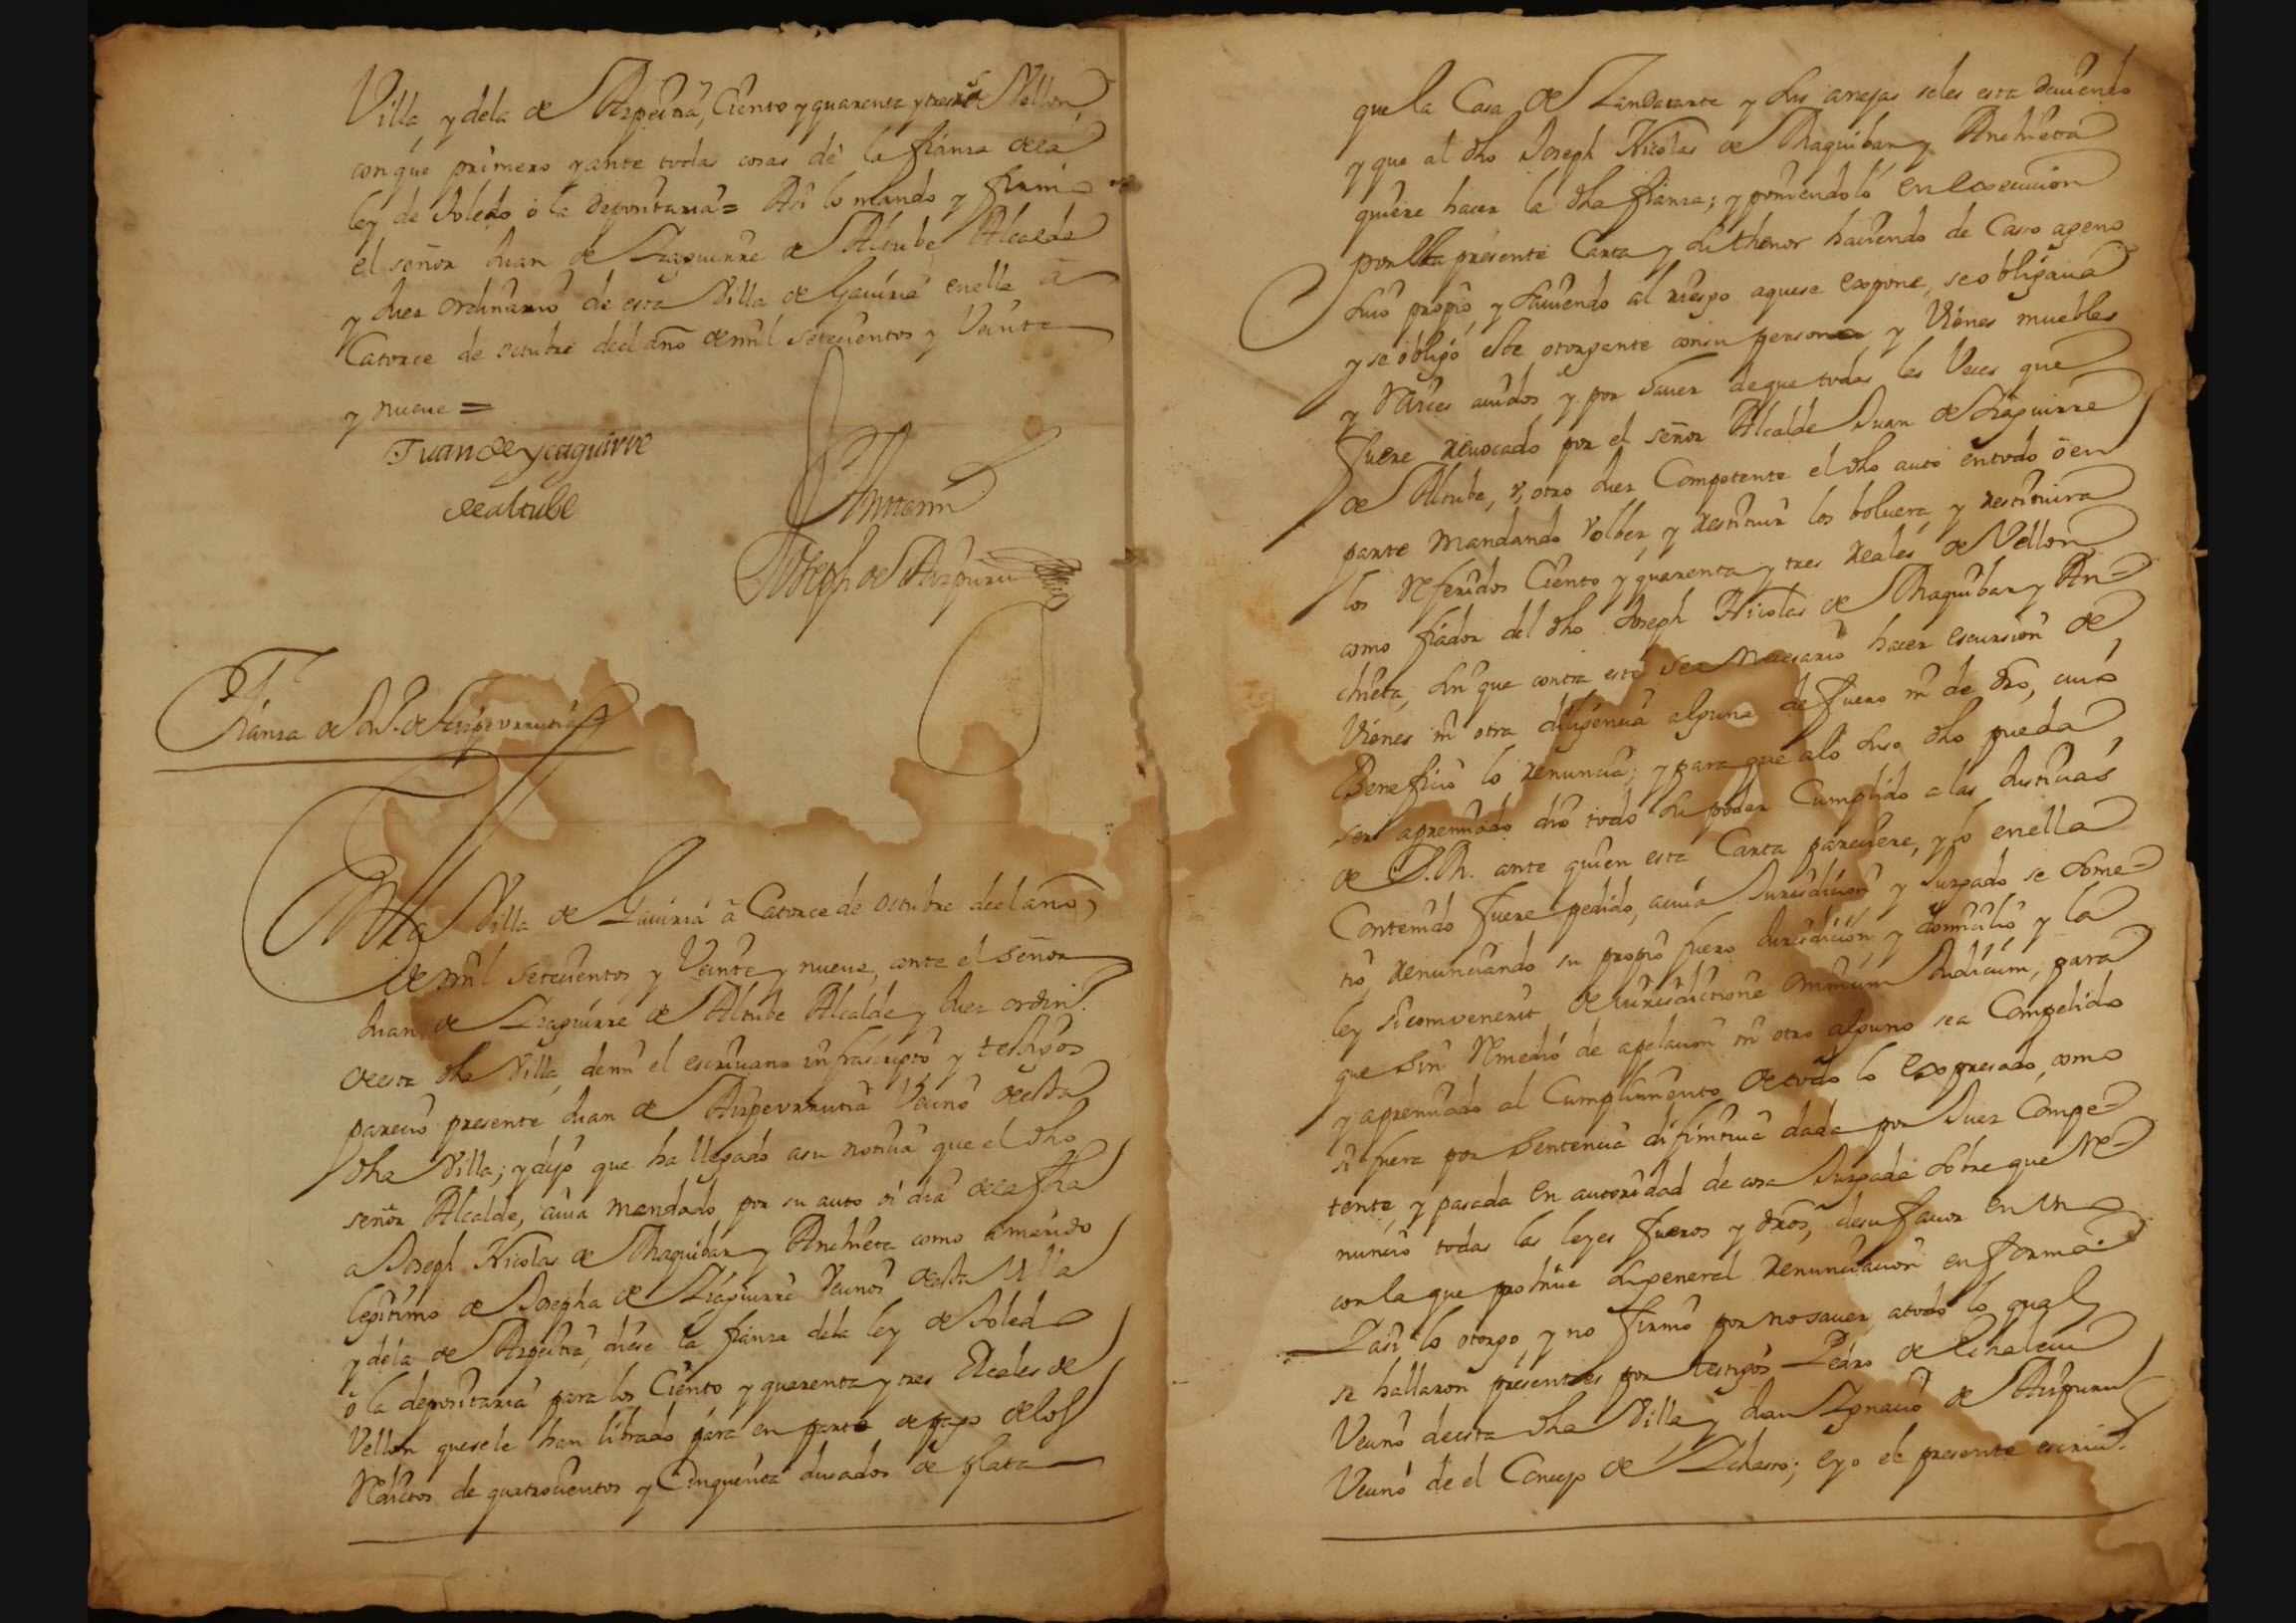 Villa y dela de Azpeitia, Ciento y quarenta y tres rs de Vellon,
conque primero y ante todas cosas dé la fianza dela
ley de Toledo o la depositaria= Asi lo mando y firmó
el señor Juan de Yzaguirre de Altube Alcalde
y Juez ordinario de esta Villa de Gaviria enella à
Catorce de octubre deel año de mil setecientos y Veinte
y nueve =
Juan de ycaguirre
de altube
Antemi
Joseph de Aizpuru
Fianza de Ju.º de Aizpeurrutia
En la Villa de Gaviria à Catorce de octubre deel año
de mil setecientos y Veinte y nueve, ante el señor
Juan de Yzaguirre de Altube Alcalde y Juez ordin.º
deesta dha Villa, de mi el escrivano infrascripto y testigos
parecio presente Juan de Aizpeurrutia Vecino deesta
dha Villa; y dijo que ha llegado asu noticia que el dho
señor Alcalde, avia mandado por su auto oi dia dela fha
a Joseph Nicolas de Araquiban y Anchieta como amarido
legitimo de Josepha de Yzaguirre Vecinos deesta Villa
y dela de Azpeitia, diese la fianza dela ley de Toledo
ò la depositaria para los Ciento y quarenta y tres Reales de
Vellon quesele han librado para en parte de pago delos
Reditos de quatrocientos y Cinquenta ducados de plata
que la Casa de Zandatante y sus anejas seles esta deviendo
y que al dho Joseph Nicolas de Araquiban y Anchieta
quiere hacer la dha fianza; y poniendolo en Execucion
por la presente Carta y su thenor haciendo de Caso ageno
suio propio y saviendo al riesgo aquese Expone, se obligava
y se obligó este otorgante consu persona y Vienes muebles
y Raices avidos y por haver deque todas las Veces que
fuere revocado por el señor Alcalde Juan de Yzaguirre
de Altube, ù otro Juez Competente el dho auto entodo ò en
parte mandando Volver, y restituir los bolvera y restituira
los Referidos Ciento y quarenta y tres Reales de Vellon
como fiador del dho Joseph Nicolas de Araquiban y An=
chieta, sin que contra este sea Necesario hacer escursion de
Vienes ni otra diligencia alguna de fuero ni de dro, cuio
Beneficio lo renuncia; y para que alo suso dho pueda
ser apremiado dio todo su poder Cumplido a las Justicias
de S. M. ante quien esta Carta pareciere, y lo enella
Contenido fuere pedido, acuia Jurisdicion y Juzgado se some=
tio, renunciando su propio fuero Jurisdicion, y domicilio y la
ley sicomvenerit de iurisdictione omnium Judicum, para
que sin Remedio de apelacion ni otro alguno sea Compelido
y apremiado al Cumplimiento de todo lo Expresado, como
si fuera por Sentencia difinitiva dada por Juez Compe=
tente, y pasada en autoridad de cosa Juzgada sobre que Re=
nuncio todas las leyes fueros y dros, desu favor en un
con la que prohive la general renunciacion enforma.
Yasi lo otorgo, y no firmó por no saver, atodo lo qual
se hallaron presentes por testigos Pedro de Echalecu
Vecino deesta dha Villa y Juan Ygnacio de Aizpuru
Vecino de el Concejo de Ychasso; e yo el presente escriv.º